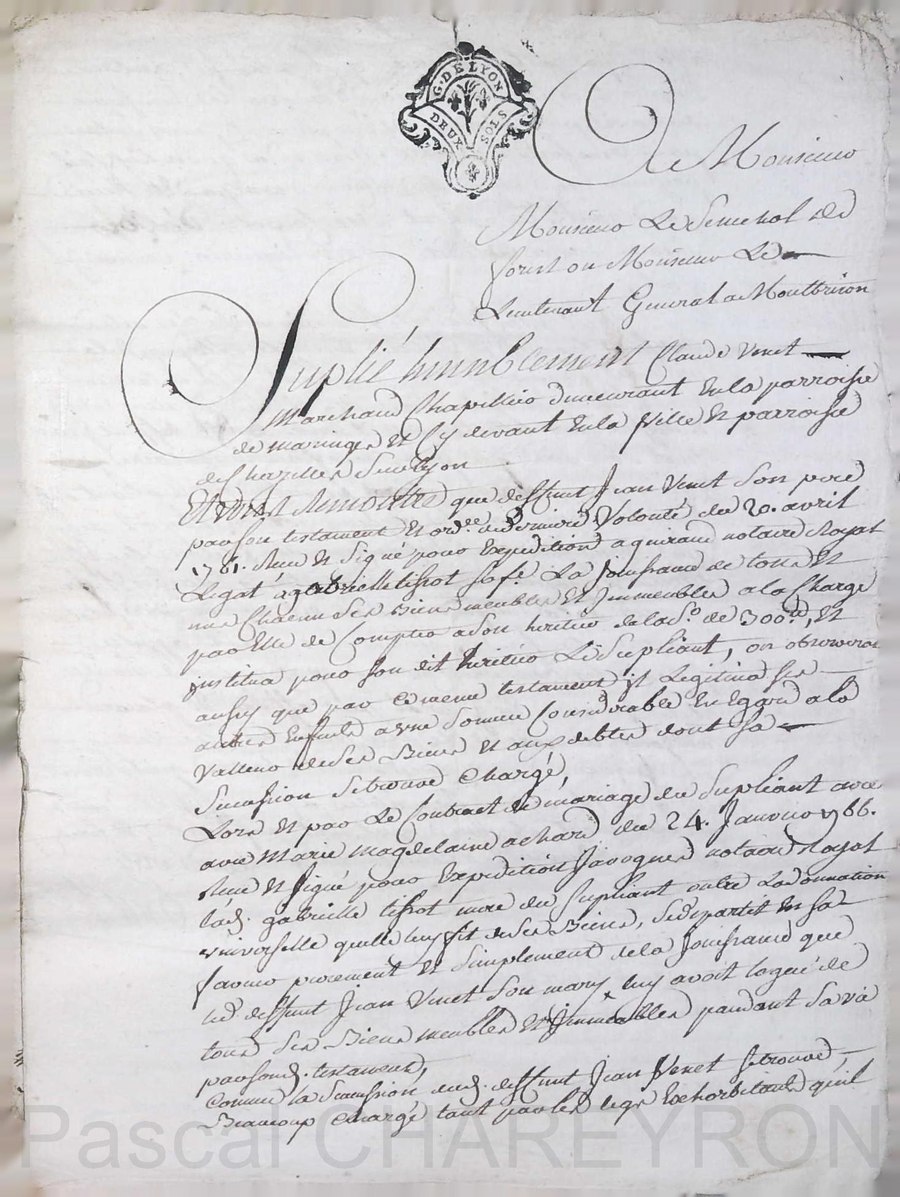 G. DE LYON
DEUX SOLS
A Monsieur
Monsieur Le Senechal de
forest ou Monsieur Le
Lieutenant General a Montbrison
Suplié humblement Claude Venet
Marchand Chapellier demeurant En la parroisse
de maringes Et Cy devant En la Ville Et parroisse
de Chazelles Sur Lyon
Et vous Remontre que deffunt Jean Venet Son pere
par son testament Et ord.ce de derniere Volonté du 20. avril
1761. Reçu Et Signé pour Expedition aguiraud notaire Royal
Legat á gabrielle tissot Sa fe. La Jouissance de tous Et
uns Chacun Ses Biens meubles Et Immeubles a la Charge
par Elle de Compter a Son heritier de la So. de 300lt, Et
institua pour Son dit heritier Le Supliant, on observera
aussy que par Ce meme testament il Legitima Ses
autres Enfants a une Somme Considerable En Egard a la
Valleur de Ses Biens Et aux debtes dont Sa
Sucession Se trouve Chargé,
Lors Et par Le Contract de mariage du Supliant avec
avec Marie Magdelaine achard du 24. Janvier 1766.
Reçu Et Signé pour Expedition Javogues notaire Royal
lad. gabrielle tissot mere du Supliant outre La donnation
universelle quelle luy fit de Ses Biens, Se departit En Sa
faveur purement Et Simplement de la Jouissance que
led. deffunt Jean Venet Son mary luy avoit legué de
tous Ses Biens meubles Et Immeubles pendant Sa vie
par Sond. testament,
Comme la Sucession dud. deffunt Jean Venet Se trouve,
Beaucoup Chargé tant par les legs Exhorbitants qu'il
Pascal CHAREYRON